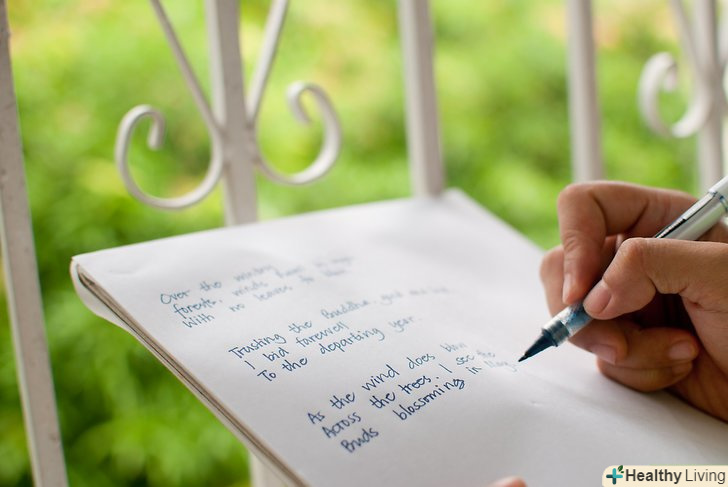 Over the wintry
forests, winds howl in rage
With no leaves to blow.
Trusting the Buddha, good and bad,
I bid farewell
To the departing year.
As the wind does blow
Across the trees, I see the
Buds blossoming in May
Healthy Living